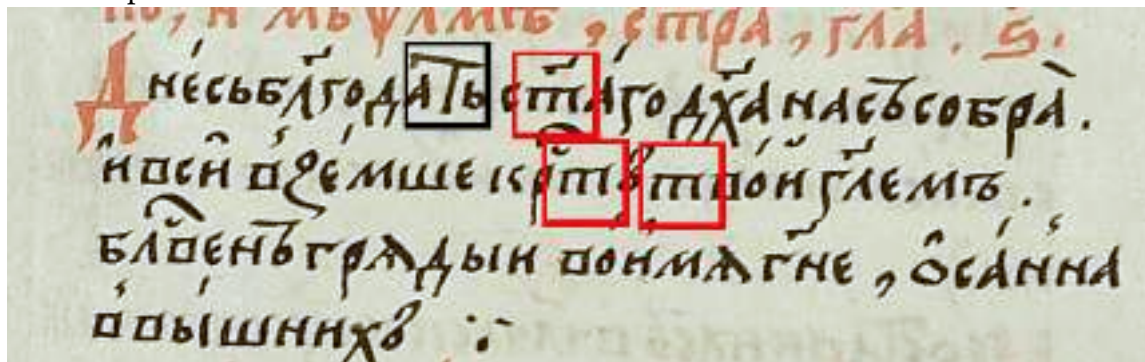 по, и мъѱлмѣ, стра, гла. ѕ.
Дне́сь бл҃года́ть ст҃а́го дх҃а на́съ собра̀.
и҆ вси̑ взе́мше кр҃тъ тво́й гл҃емъ.
бл҃ве́нъ гряды́и во́имѧ гн҃е, ѡ҆са́нна
в вы́шнихъ :·